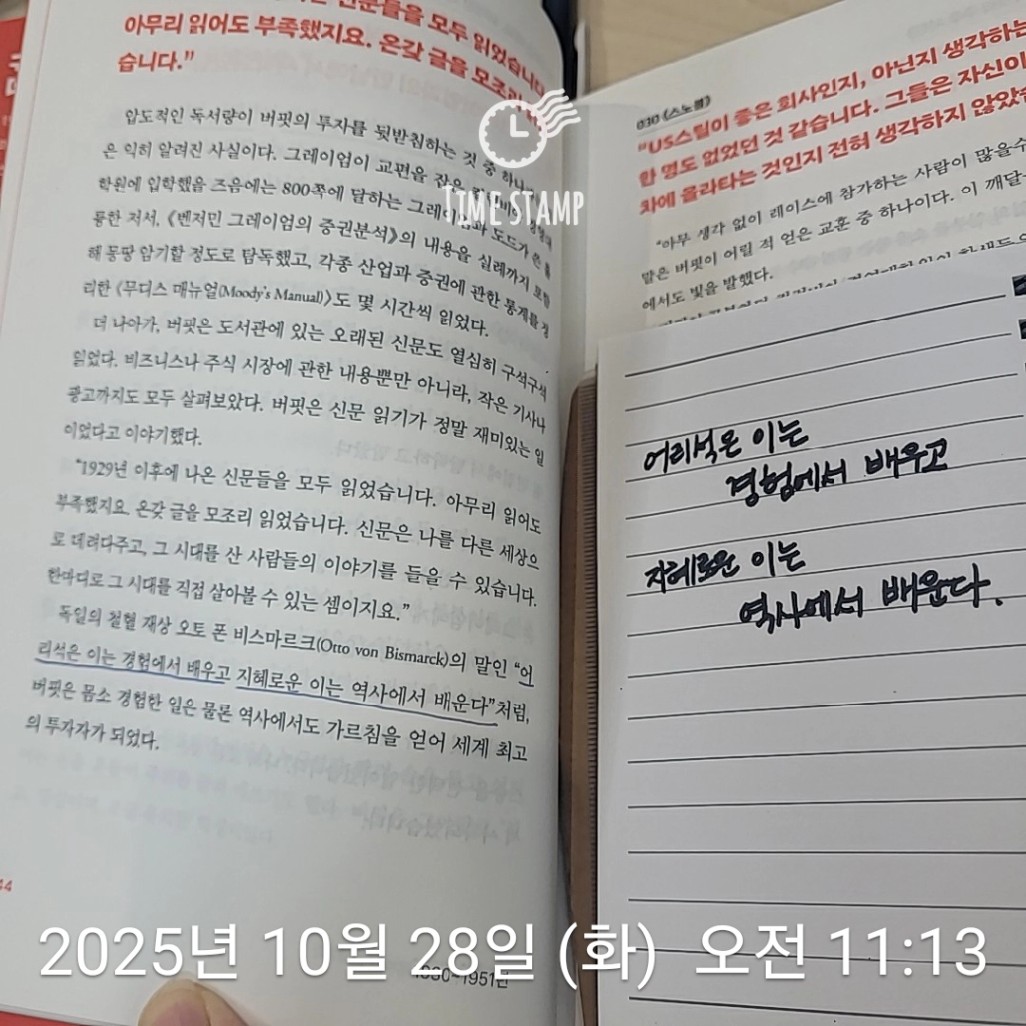 신문들을 모두 읽었습니다
아무리 읽어도 부족했지요. 온갖 글을 모조리
습니다.”
압도적인 독서량이 버핏의 투자를 뒷받침하는 것 중 하나
은 익히 알려진 사실이다. 그레이엄이 교편을 잡은
학원에 입학했을 즈음에는 800쪽에 달하는 그레이엄과 도드가 쓴 훌
륭한 저서, 《벤저민 그레이엄의 증권분석》의 내용을 실례까지 포함
해 몽땅 암기할 정도로 탐독했고, 각종 산업과 증권에 관한 통계를 정
리한 《무디스 매뉴얼(Moody's Manual)》도 몇 시간씩 읽었다.
더 나아가, 버핏은 도서관에 있는 오래된 신문도 열심히 구석구석
읽었다. 비즈니스나 주식 시장에 관한 내용뿐만 아니라, 작은 기사나
광고까지도 모두 살펴보았다. 버핏은 신문 읽기가 정말 재미있는 일
이었다고 이야기했다.
“1929년 이후에 나온 신문들을 모두 읽었습니다. 아무리 읽어도
부족했지요. 온갖 글을 모조리 읽었습니다. 신문은 나를 다른 세상으
로 데려다주고, 그 시대를 산 사람들의 이야기를 들을 수 있습니다.
한마디로 그 시대를 직접 살아볼 수 있는 셈이지요.”
독일의 철혈 재상 오토 폰 비스마르크(Otto von Bismarck)의 말인 “어
리석은 이는 경험에서 배우고 지혜로운 이는 역사에서 배운다”처럼,
버핏은 몸소 경험한 일은 물론 역사에서도 가르침을 얻어 세계 최고
의 투자자가 되었다.
44
1930~1951년
030 《스노볼》
“US스틸이 좋은 회사인지, 아닌지 생각하는
한 명도 없었던 것 같습니다. 그들은 자신이
차에 올라타는 것인지 전혀 생각하지 않았
“아무 생각 없이 레이스에 참가하는 사람이 많을수
말은 버핏이 어릴 적 얻은 교훈 중 하나이다. 이 깨달
에서도 빛을 발했다.
어리석은 이는
경험에서 배우고
지혜로운 이는
역사에서 배운다.
TIME STAMP
2025년 10월 28일 (화) 오전 11:13